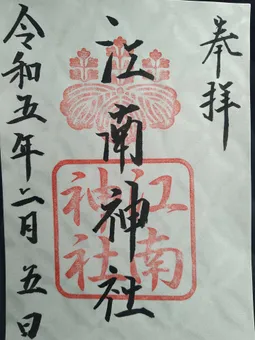 奉拝
江南神社
江南
神社
令和五年二月五日